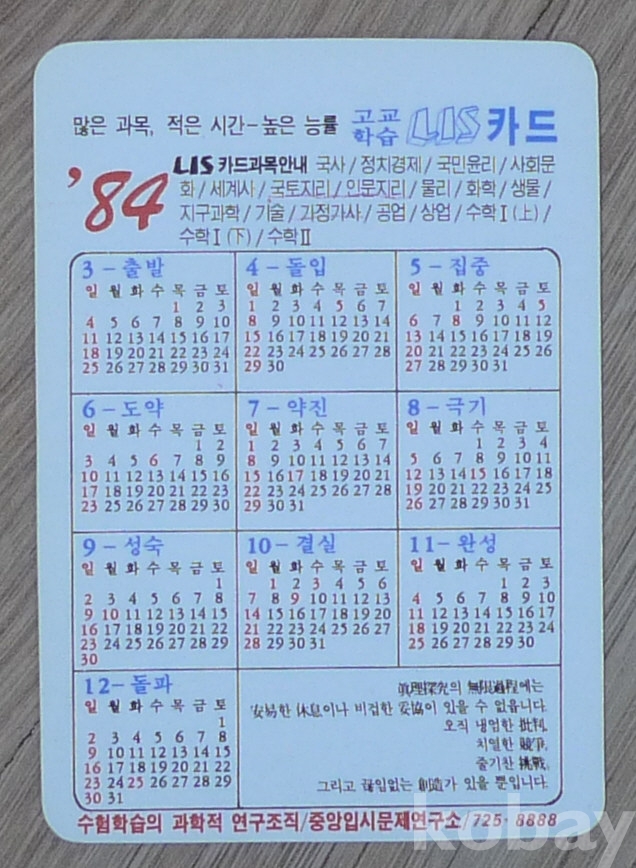 많은 과목, 적은 시간-높은 능률 고교학습 LIS 카드
'84
LIS 카드과목안내 국사/정치경제/국민윤리/사회문
화/세계사/국토지리/인문지리/물리/화학/생물/
지구과학/기술/가정가사/공업/상업/수학Ⅰ(上)/
수학Ⅰ(下)/수학Ⅱ
3-출발
일 월 화 수 목 금 토
1 2 3
4 5 6 7 8 9 10
11 12 13 14 15 16 17
18 19 20 21 22 23 24
25 26 27 28 29 30 31
4-돌입
일 월 화 수 목 금 토
1 2 3 4 5 6 7
8 9 10 11 12 13 14
15 16 17 18 19 20 21
22 23 24 25 26 27 28
29 30
5-집중
일 월 화 수 목 금 토
1 2 3 4 5
6 7 8 9 10 11 12
13 14 15 16 17 18 19
20 21 22 23 24 25 26
27 28 29 30 31
6-도약
일 월 화 수 목 금 토
1 2
3 4 5 6 7 8 9
10 11 12 13 14 15 16
17 18 19 20 21 22 23
23 25 26 27 28 29 30
7-약진
일 월 화 수 목 금 토
1 2 3 4 5 6 7
8 9 10 11 12 13 14
15 16 17 18 19 20 21
22 23 24 25 26 27 28
29 30 31
8-극기
일 월 화 수 목 금 토
1 2 3 4
5 6 7 8 9 10 11
12 13 14 15 16 17 18
19 20 21 22 23 24 25
26 27 28 29 30 31
9-성숙
일 월 화 수 목 금 토
1
2 3 4 5 6 7 8
9 10 11 12 13 14 15
16 17 18 19 20 21 22
23 24 25 26 27 28 29
30
10-결실
일 월 화 수 목 금 토
1 2 3 4 5 6
7 8 9 10 11 12 13
14 15 16 17 18 19 20
21 22 23 24 25 26 27
28 29 30 31
11-완성
일 월 화 수 목 금 토
1 2 3
4 5 6 7 8 9 10
11 12 13 14 15 16 17
18 19 20 21 22 23 24
25 26 27 28 29 30
12-돌파
일 월 화 수 목 금 토
1
2 3 4 5 6 7 8
9 10 11 12 13 14 15
16 17 18 19 20 21 22
23 24 25 26 27 28 29
30 31
眞理探究의 無限過程에는
安易한 休息이나 비겁한 妥協이 있을 수 없읍니다.
오직 냉엄한 批判,
치열한 競爭,
줄기찬 挑戰,
그리고 끊임없는 創造가 있을 뿐입니다.
수험학습의 과학적 연구조직/중앙입시문제연구소/725-8888
kobay